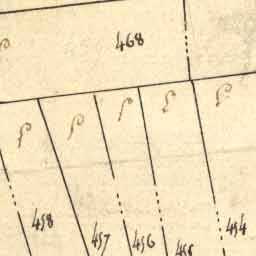 468
458
457
456
455
454